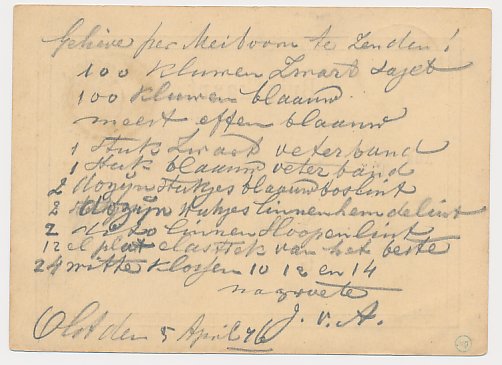 Gelieve per Meiboom te Zenden!
100 kluwen Zwart sajet
100 kluwen blaauw
meest effen blaauw
1 Stuk Zwart veterband
1 Stuk blaauw veterband
2 dozijn Stukjes blaauw boslint
2 dozijn Stukjes linnen hemdelint
2 dito linnen Stoopenlint
12 el plat elastiek van het beste
24 witte klossen 10 12 en 14
na groete
J. v. A.
Olst den 5 April 76